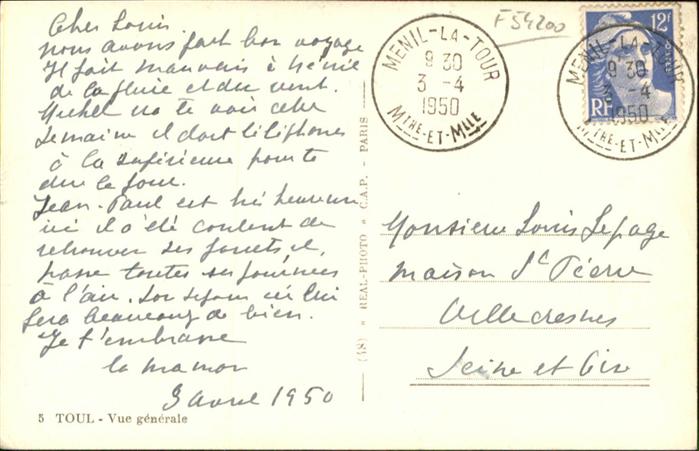 Cher Louis
nous avons fait bon voyage
Il fait mauvais à Ménil
de la pluie et du vent.
Michel va te voir cette
semaine il doit téléphoner
à la supérieure pour te
dire le jour.
Jean-Paul est très heureux
ici il a été content de
retrouver ses jouets et
passe toutes ses journées
à l'air. Son séjour ici lui
fera beaucoup de bien.
Je t'embrasse
ta maman
3 avril 1950
5 TOUL - Vue générale
(48) * REAL-PHOTO * C.A.P. - PARIS
F 54200
MENIL-LA-TOUR
9 30
3 -4
1950
MTHE-ET-MLLE
12F
RF
MENIL-LA-TOUR
9 30
3 -4
1950
MTHE-ET-MLLE
Monsieur Louis Lepage
maison St Pierre
Villecresnes
Seine et Oise